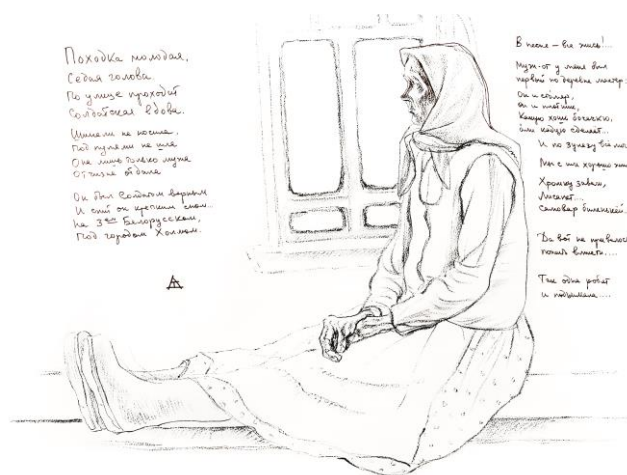 Походка молодая,
Седая голова.
По улице проходит
Солдатская вдова.
Шинели не носила,
Под пулями не шла
Она лишь только мужа
Отчизне отдала
Он был солдатом верным
И спит он крепким сном...
На 3ем Белорусском,
Под городом Холмом.
В песне – вся жись!...
Муж-от у меня был
первый по деревне мастер:
Он и столяр,
он и плотник,
Какую хошь
али кадцу сделает...
И по
Мы с им хорошо
Хромку завели,
Лисапет...
Самовар
Да вот не привелось
пожить вместе....
Так одна робят
и подымала....